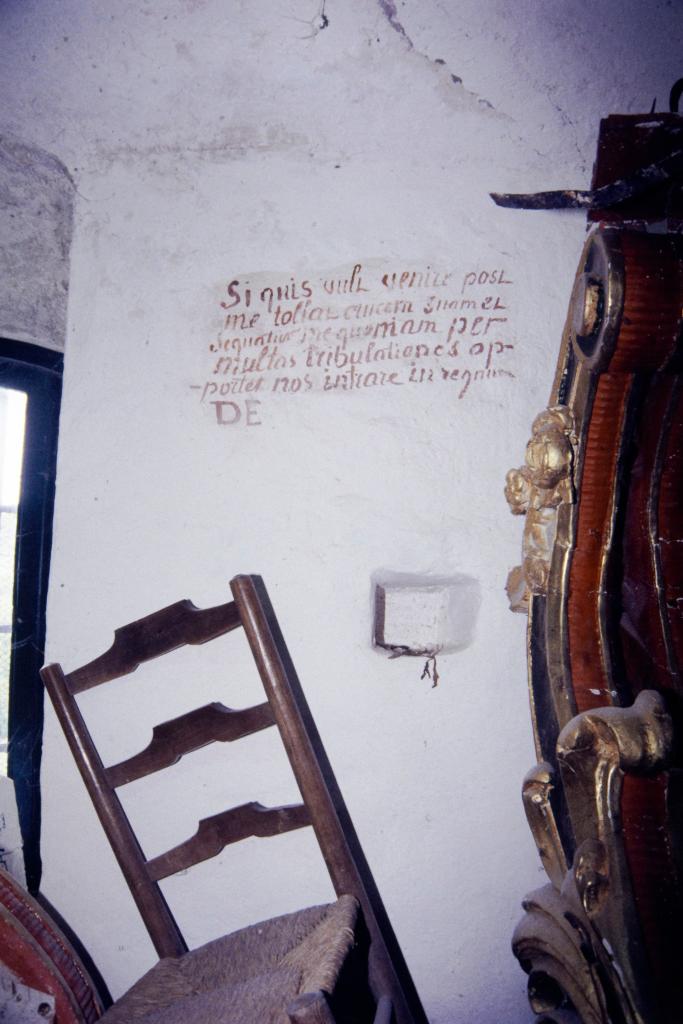 Si quis vult venire post
me tollat crucem suam et
sequatur me quoniam per
multas tribulationes op-
-portet nos intrare in regnum
DE